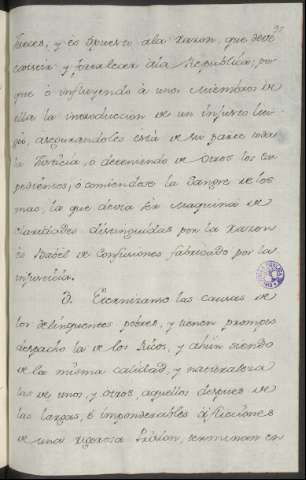 Jueces, y es opuesto ala razon, que debe
construir y fortalecer ála Republica; por
que ó influyendo á unos miembros de
ella la introduccion de un injusto
asegurandoles está de su parte
la Justicia, ó deteniendo de otros los
ó comiendose la sangre de los
mas, la que devia ser maquina de
claridades distinguidas por la razon
es Babel de confusiones fabricado por la
injusticia.
3. Eternizanse las causas de
los delinquentes pobres, y tienen prompto
despacho las de los Ricos, y ahun siendo
de la misma calidad, y naturaleza
las de unos, y otros, aquellos despues de
las largas, é imponderables aflicciones
de una rigorosa Prision, terminan en